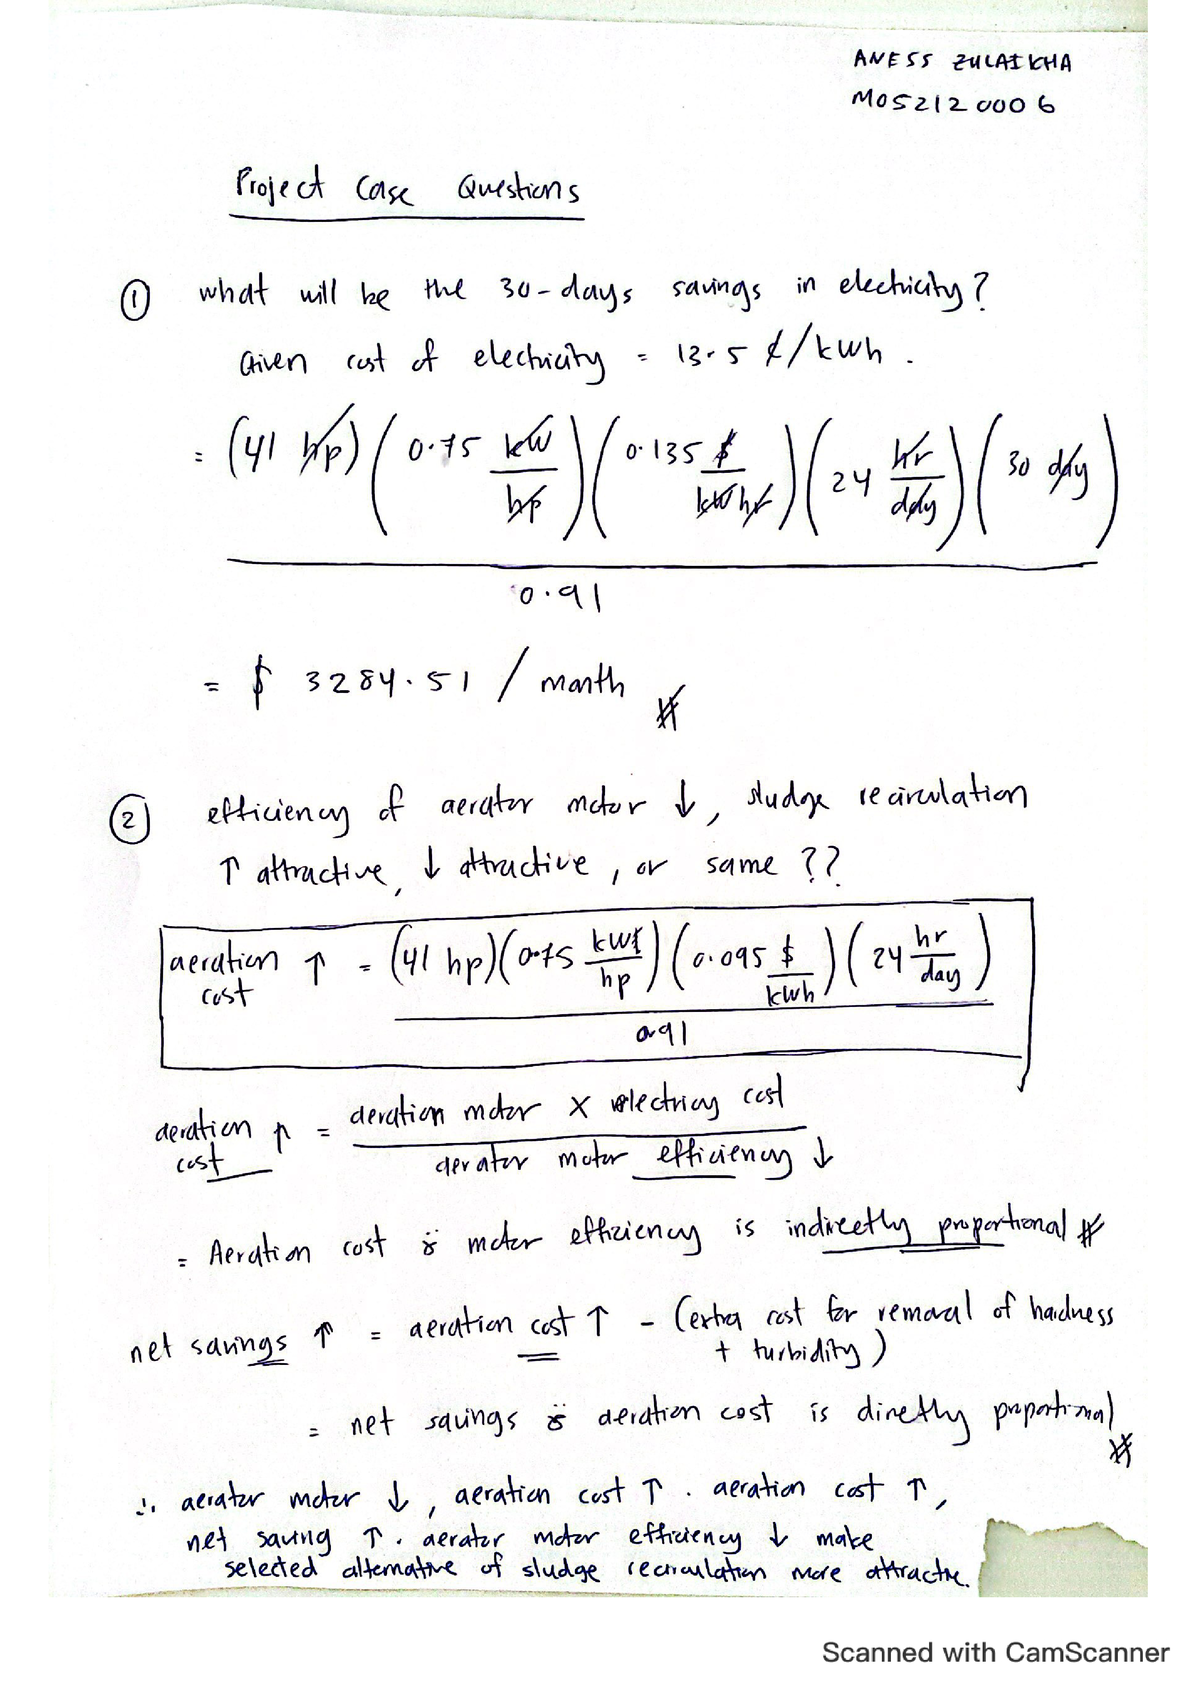 ANESS ZULAIKHA
M052120006
Project Case Questions
① what will be the 30-days savings in electricity?
Given cost of electricity = 13.5 ¢/kWh.
= (41 hp)(0.75 kW/hp)(0.135 $/kW hr)(24 hr/day)(30 day)
0.91
= $ 3284.51 / month #
② efficiency of aerator motor ↓, sludge recirculation
↑ attractive, ↓ attractive, or same ??
aeration cost ↑ = (41 hp)(0.75 kW/hp)(0.095 $/kWh)(24 hr/day)
0.91
aeration cost ↑ = aeration motor × electricy cost
aerator motor efficiency ↓
= Aeration cost & motor efficiency is indirectly proportional #
net savings ↑ = aeration cost ↑ - (extra cost for removal of hardness
+ turbidity)
= net savings & aeration cost is directly proportional #
∴ aerator motor ↓, aeration cost ↑. aeration cost ↑,
net saving ↑. aerator motor efficiency ↓ make
selected alternative of sludge recirculation more attractive.
Scanned with CamScanner